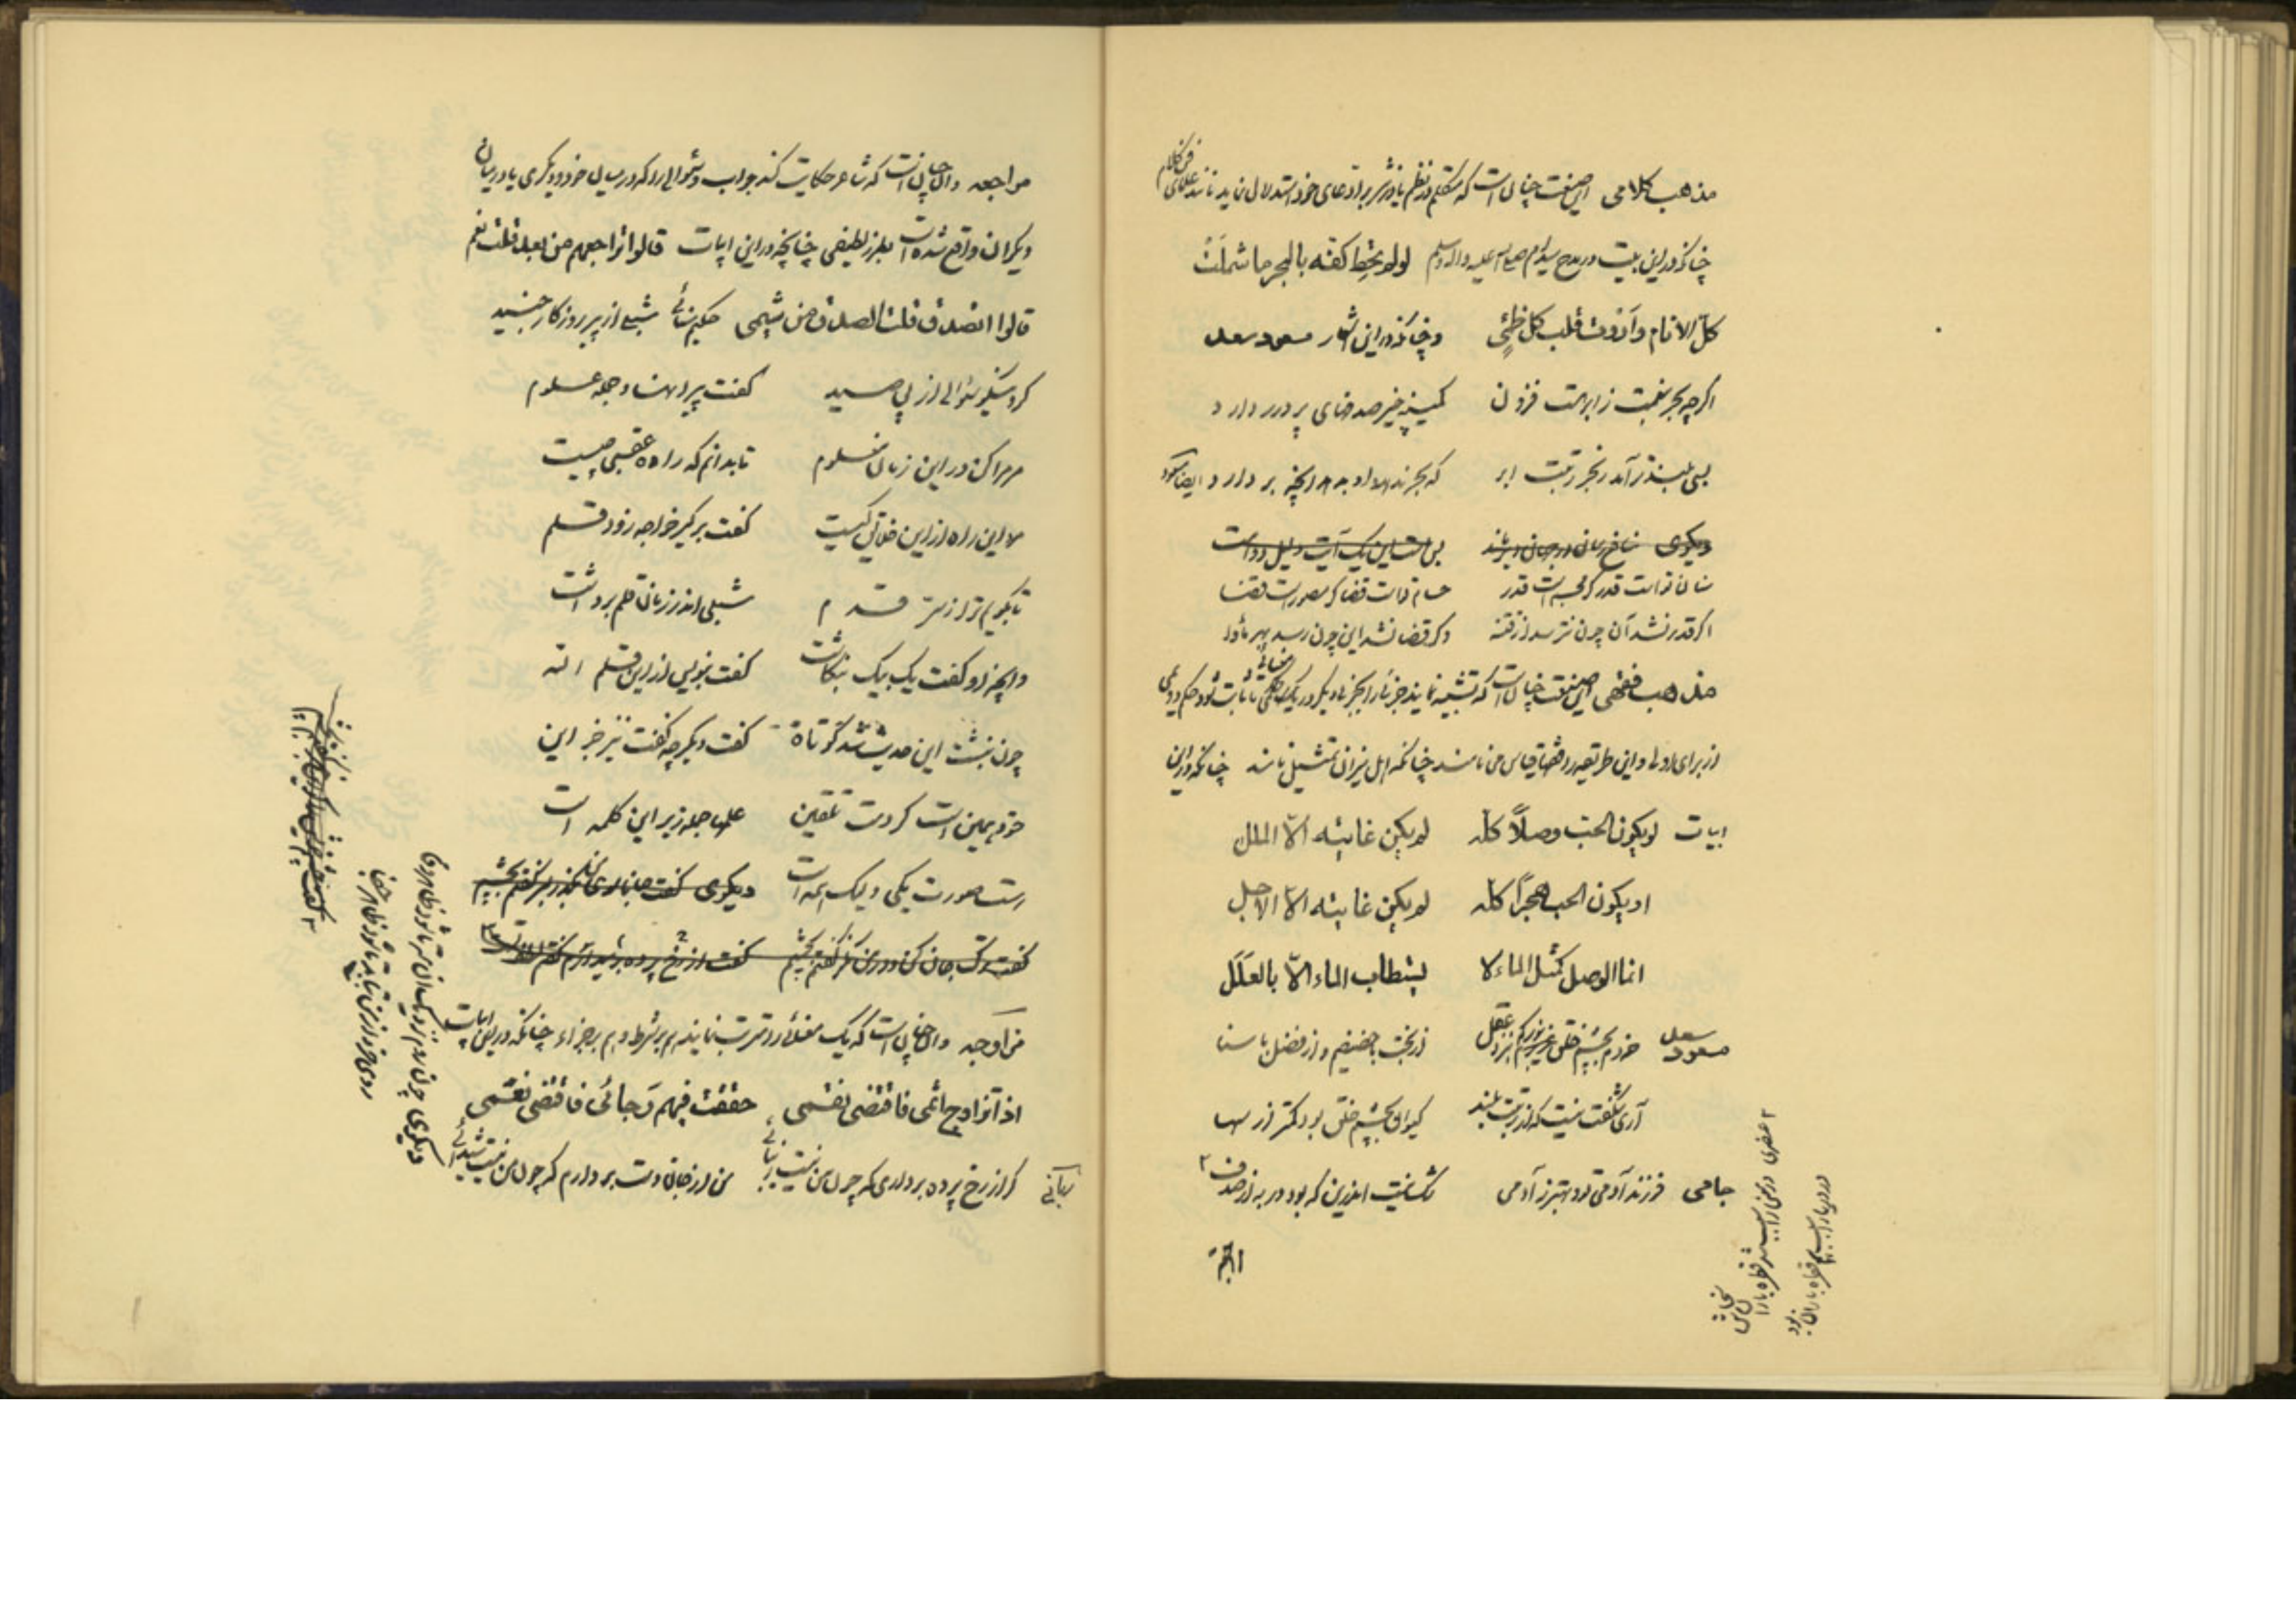 مذهب کلامی این صنعت چنان است که متکلم در نظم یا در نثر بر ادعای خود استدلال نماید مانند علمای
فن کلام
چنانکه در این بیت در مدح سید انام صلی الله علیه و آله و سلم لو لم تحط کفه بالبحر ما شملت
کل الانام و اروت قلب کل ظمئ و چنانکه در این اشعار مسعود سعد
اگرچه بحر بنعمت ز ابر هست فزون کمینه چیز صدفهای پر درر دارد
بسی بلندتر آمد ز بحر رتبت ابر که بحر ندهد او بدهد هر آنچه بردارد ایضا مسعود
دیگری
سنان تو است قدر گر مجسم است قدر حسام تو است قضا گر مصور است قضا
اگر قدر نشد آن چون نترسد از فتنه وگر قضا نشد این چون رسد بهر مأوا
مذهب فقهی این صنعت چنان است که تشبیه نمایند چیزی را بچیز دیگر در یک حکمی تا ثابت شود حکم دویمی
از برای اولی و این طریقه را فقها قیاس می نامند چنانکه اهل میزان تمثیل نامند چنانکه در این
ابیات لو یکون الحب وصلاً کله لم یکن غایته الّا الملل
او یکون الحب هجراً کله لم یکن غایته الّا الاجل
انما الوصل کمثل الماء لا یستطاب الماء الّا بالعلل
مسعود سعد خردم بچشم خلق و بزرگم بنزد عقل از بخت با حضیضم و از فضل با سنا
آری شگفت نیست که از رتبت بلند کیوان بچشم خلق بود کمتر از سها
جامی فرزند آدمی تو و بهتر ز آدمی شک نیست اندرین که بود در به از صدف
شد قطره باران
قطره باران بود
مراجعه و آن چنان است که شاعر حکایت کند جواب و سؤالی را که در میان خود و دیگری یا در میان
دیگران واقع شده است بطرز لطیفی چنانچه در این ابیات قالوا تراجعهم من بعد قلت نعم
قالوا اتصدق قلت الصدق من شیمی حکیم سنائی شبلی از پیر روزگار جنید
کرد نیکو سؤالی از پی صید گفت پیرا نهاد جمله علوم
مر مرا کن در این زمان معلوم تا بدانم که راه عقبی چیست
مرد این راه از این خلایق کیست گفت برگیر خواجه زود قلم
تا بگویم ترا ز سر قدم شبلی اندر زمان قلم برداشت
و آنچه او گفت یک بیک بنگاشت گفت بنویس از این قلم الله
چون نبشت این حدیث شد کوتاه گفت دیگر چه گفت نیز جز این
خود همین است کردمت تلقین علمها جمله زیر این کلمه است
است صورت یکی ولیک همه است دیگری گفت
گفت گفتم بچشم گفت از رخ پرده
مزاوجه و آن چنان است که یک معنائی را مترتب نمایند هم بر شرط و هم بر جزاء چنانکه در این ابیات
اذا تزاوج اثمی فاقتضی نقمی حققت فیهم رجائی فاقتضی نعمی
گر از رخ پرده برداری که چون من نیست زیبائی من از جان دست بردارم که چون من نیست شیدائی
دیگری چون
روی خود از من